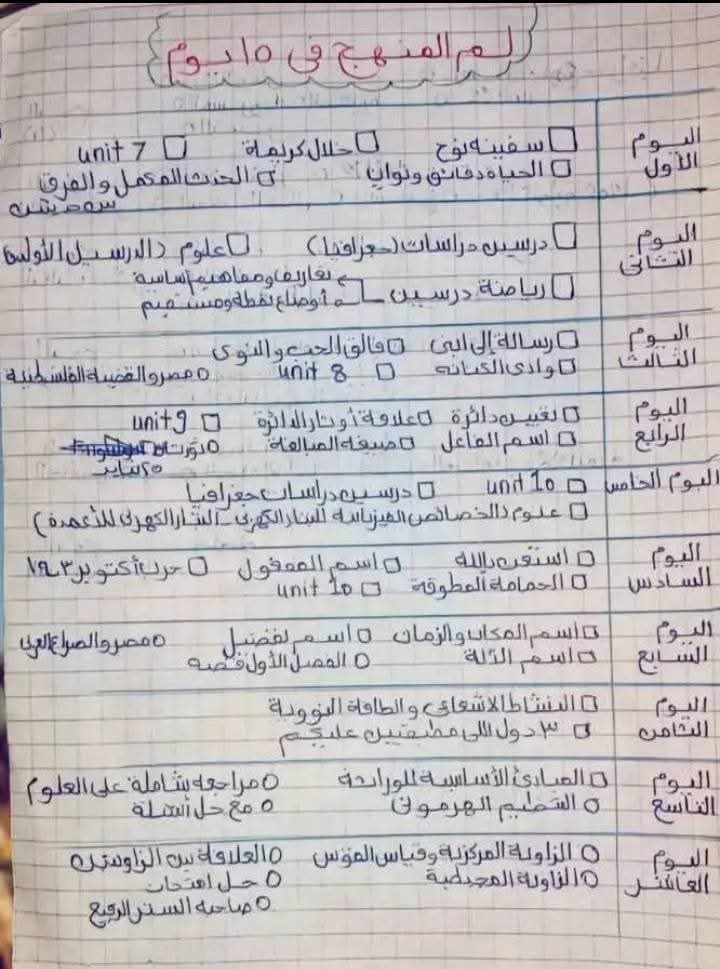 لم المنهج في ١٥ يوم
اليوم الأول
سفينة نوح حلال كريمة unit 7
الحياة دقائق وثوان الحدث المكمل والفرق بين حدثين
اليوم الثاني
درسين دراسات (جغرافيا) علوم (الدرسين الأولين)
رياضة درسين تعاريف ومفاهيم أساسية
أوضاع نقطة ومستقيم
اليوم الثالث
رسالة إلى ابني فالق الحب والنوى
وادى الكنانة unit 8 مصر والقضية الفلسطينية
اليوم الرابع
تعيين دائرة علاقة أوتار الدائرة unit 9
اسم الفاعل صيغة المبالغة ثورت
٢٥ يناير
اليوم الخامس unit 10 درسين دراسات جغرافيا
علوم (الخصائص الفيزيائية للتيار الكهربى - التيار الكهربى للأعمدة)
اليوم السادس
استعن بالله اسم المفعول حرب أكتوبر ١٩٧٣
الحمامة المطوقة unit 10
اليوم السابع
اسم المكان والزمان اسم تفضيل مصر والصراع العربى
اسم الآلة الفصل الأول قصة
اليوم الثامن
النشاط الاشعاعى والطاقة النووية
٣ دول اللى مطبقين عليكم
اليوم التاسع
المبادئ الأساسية للوراثة مراجعة شاملة على العلوم
التنظيم الهرمونى مع حل أسئلة
اليوم العاشر
الزاوية المركزية وقياس القوس العلاقة بين الزاويتين
الزاوية المحيطية حل امتحان
صاحبة الستر الرفيع